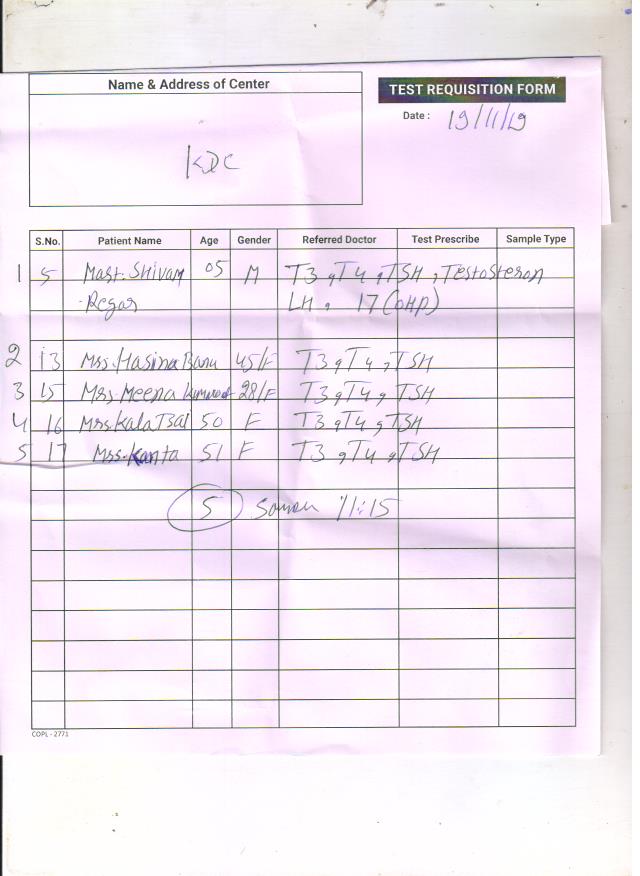 Name & Address of Center
TEST REQUISITION FORM
Date : 19/11/19
KDC
S.No. Patient Name Age Gender Referred Doctor Test Prescribe Sample Type
1 5 Mast. Shivam 05 M T3, T4, TSH, Testosteron
Regar LH, 17(OHP)
2 13 Mrs. Hasina Banu 45/F T3, T4, TSH
3 15 Mrs. Meena 28/F T3, T4, TSH
4 16 Mrs. Kala 50 F T3, T4, TSH
5 17 Mrs. Kanta 51 F T3, T4, TSH
5 11:15
COPL - 2771